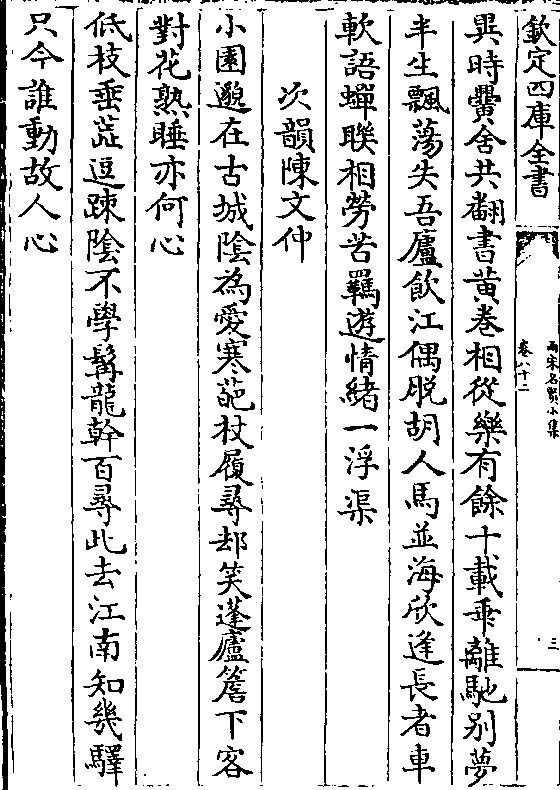 欽定四庫全書
兩宋名賢小集
卷八十二
三
異時黌舍共翻書黄卷相從樂有餘十載乖離馳别夢
半生飄蕩失吾廬飲江偶脱胡人馬並海欣逢長者車
軟語蟬聯相勞苦羈遊情緒一浮渠
次韻陳文仲
小園邈在古城陰為愛寒葩杖屨尋却笑蓬廬簷下客
對花熟睡亦何心
低枝垂蕋逗踈陰不學髯龍幹百尋此去江南知幾驛
只今誰動故人心